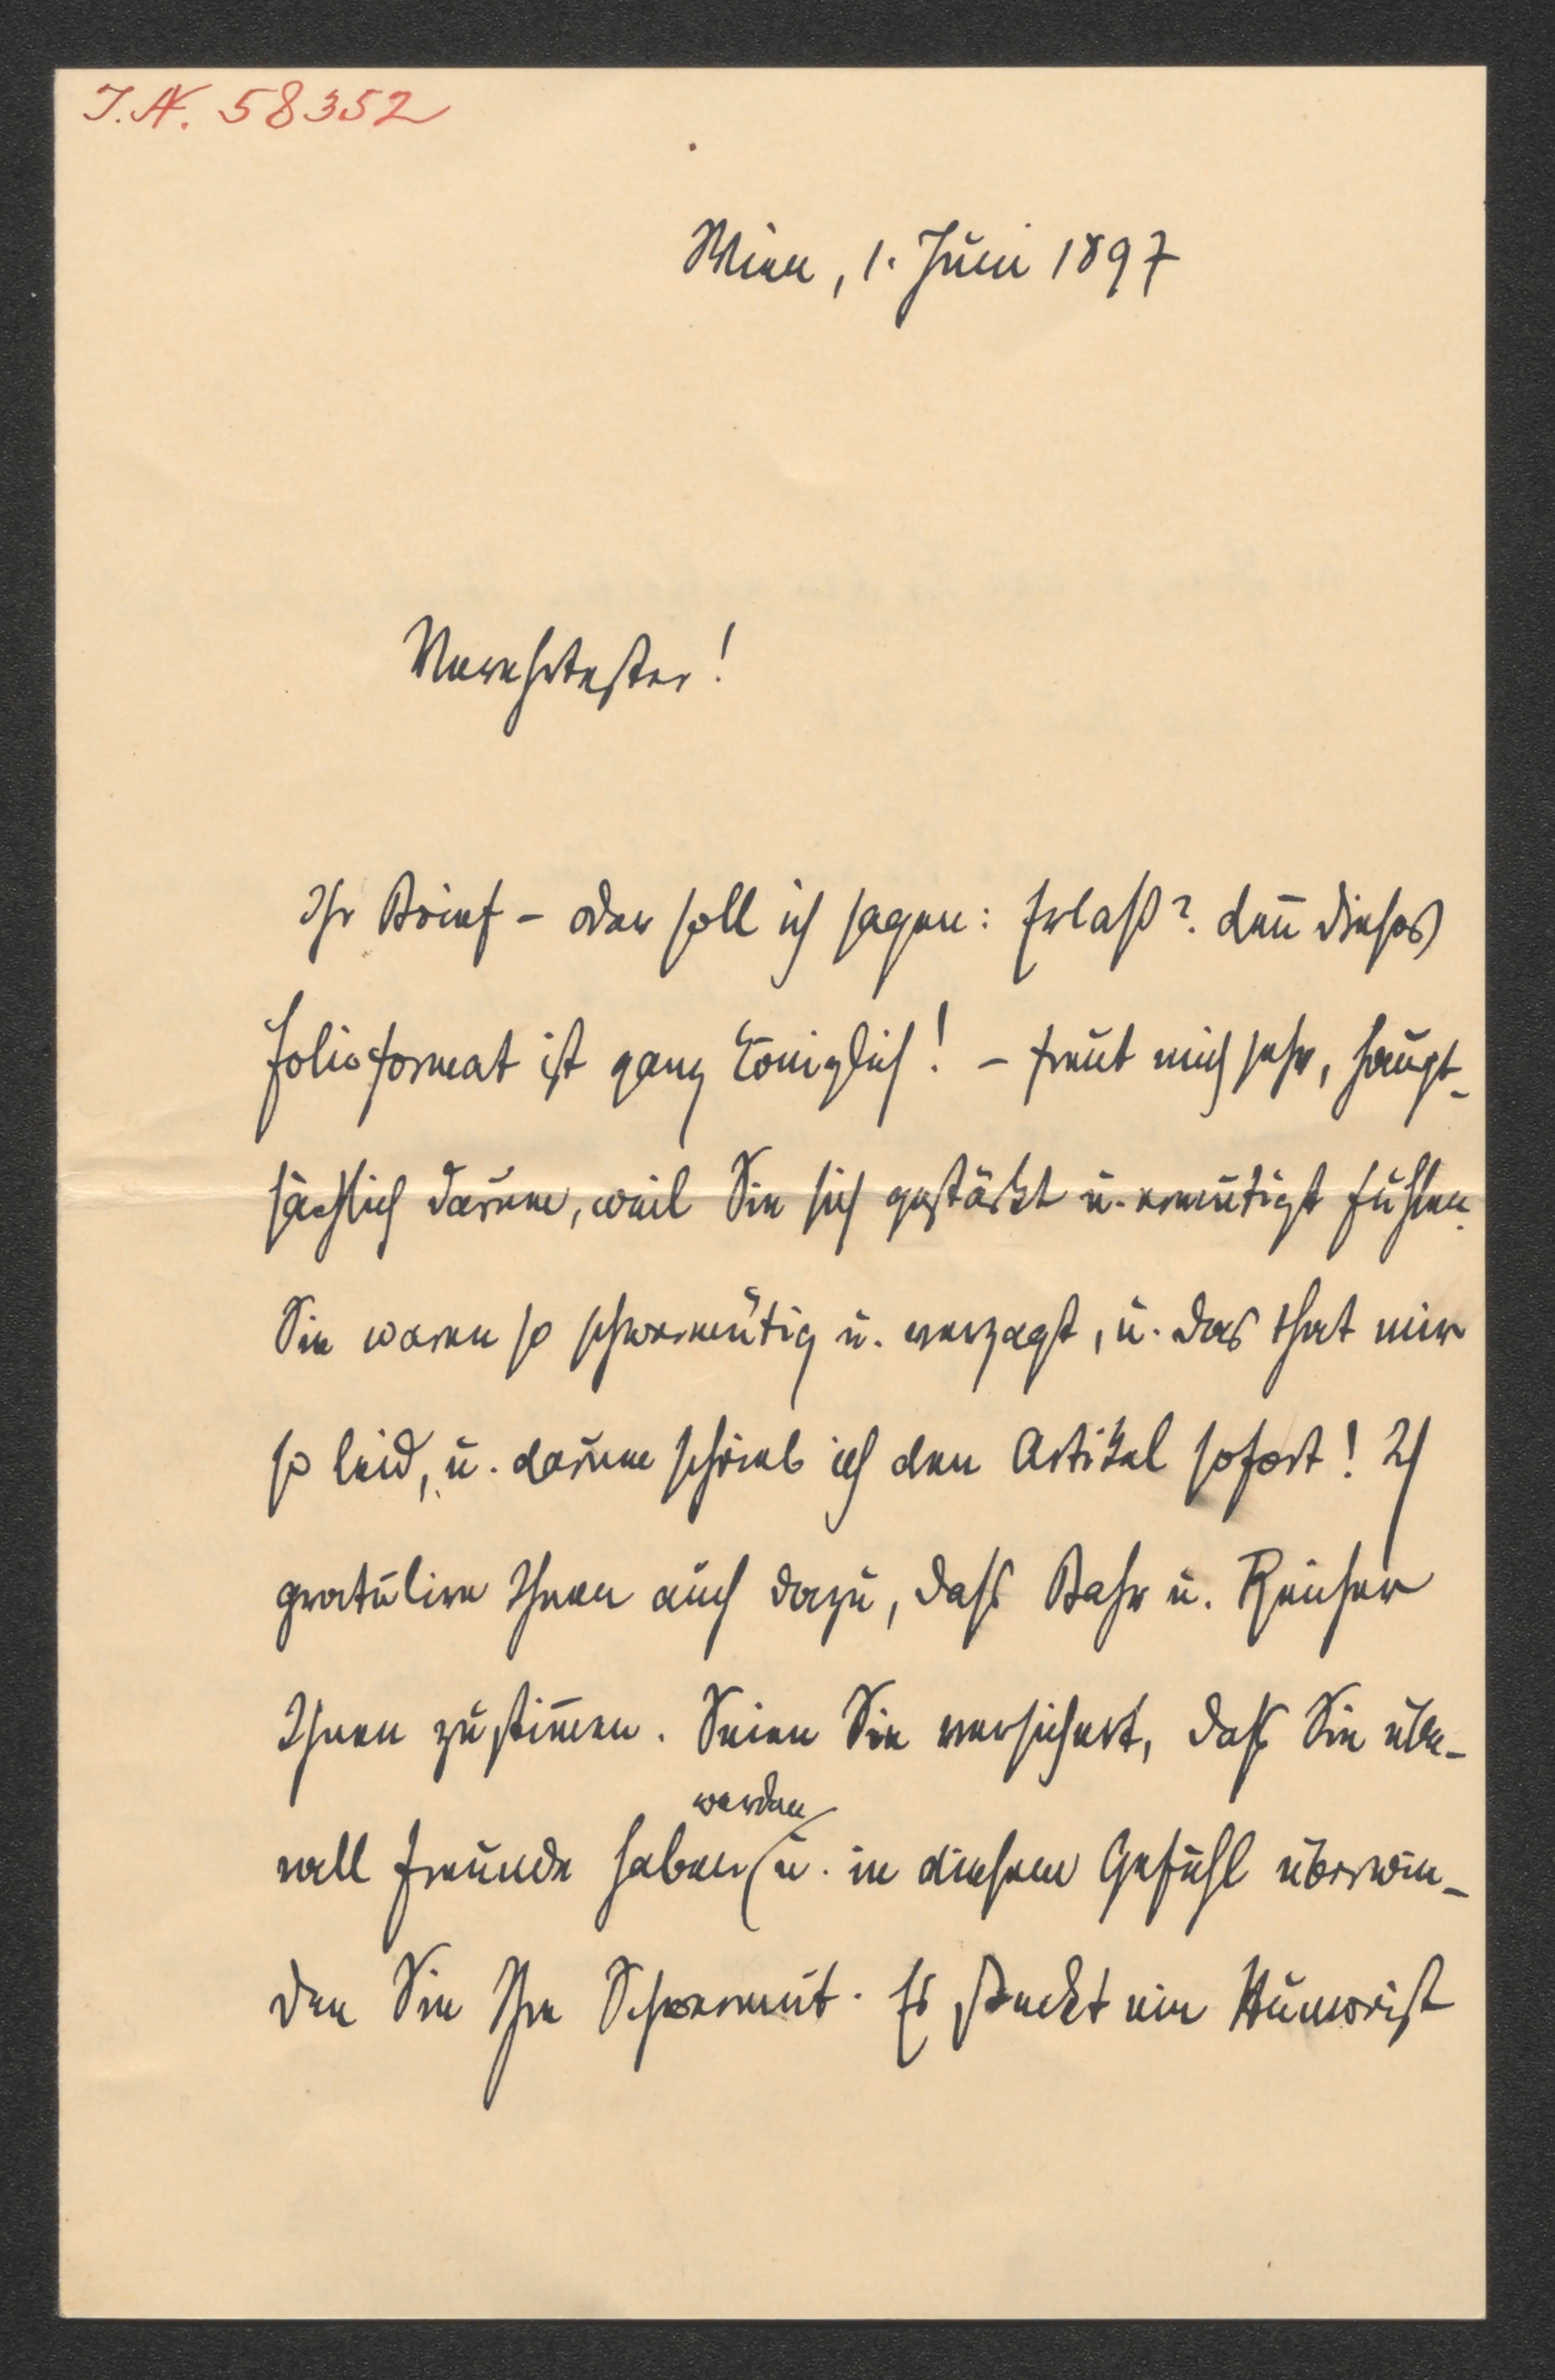 I.N. 58352
Wien, 1. Juni 1897
Verehrtester!
Ihr Brief – oder soll ich sagen: Erlaß? den̅ dieses
Folioformat ist ganz königlich! – freut mich sehr, haupt-
sächlich darum, weil Sie sich gestärkt u. ermutigt fühlen.
Sie waren so schwermütig u. verzagt, u. das that mir
so leid, u. darum schrieb ich den Artikel sofort! Ich
gratulire Ihnen auch dazu, daß Bahr u. Reicher
Ihnen zustim̅en. Seien Sie versichert, daß Sie übe-
werden
rall Freunde haben u. in diesem Gefühl überwin-
den Sie Ihre Schwermut. Es steckt ein Humorist